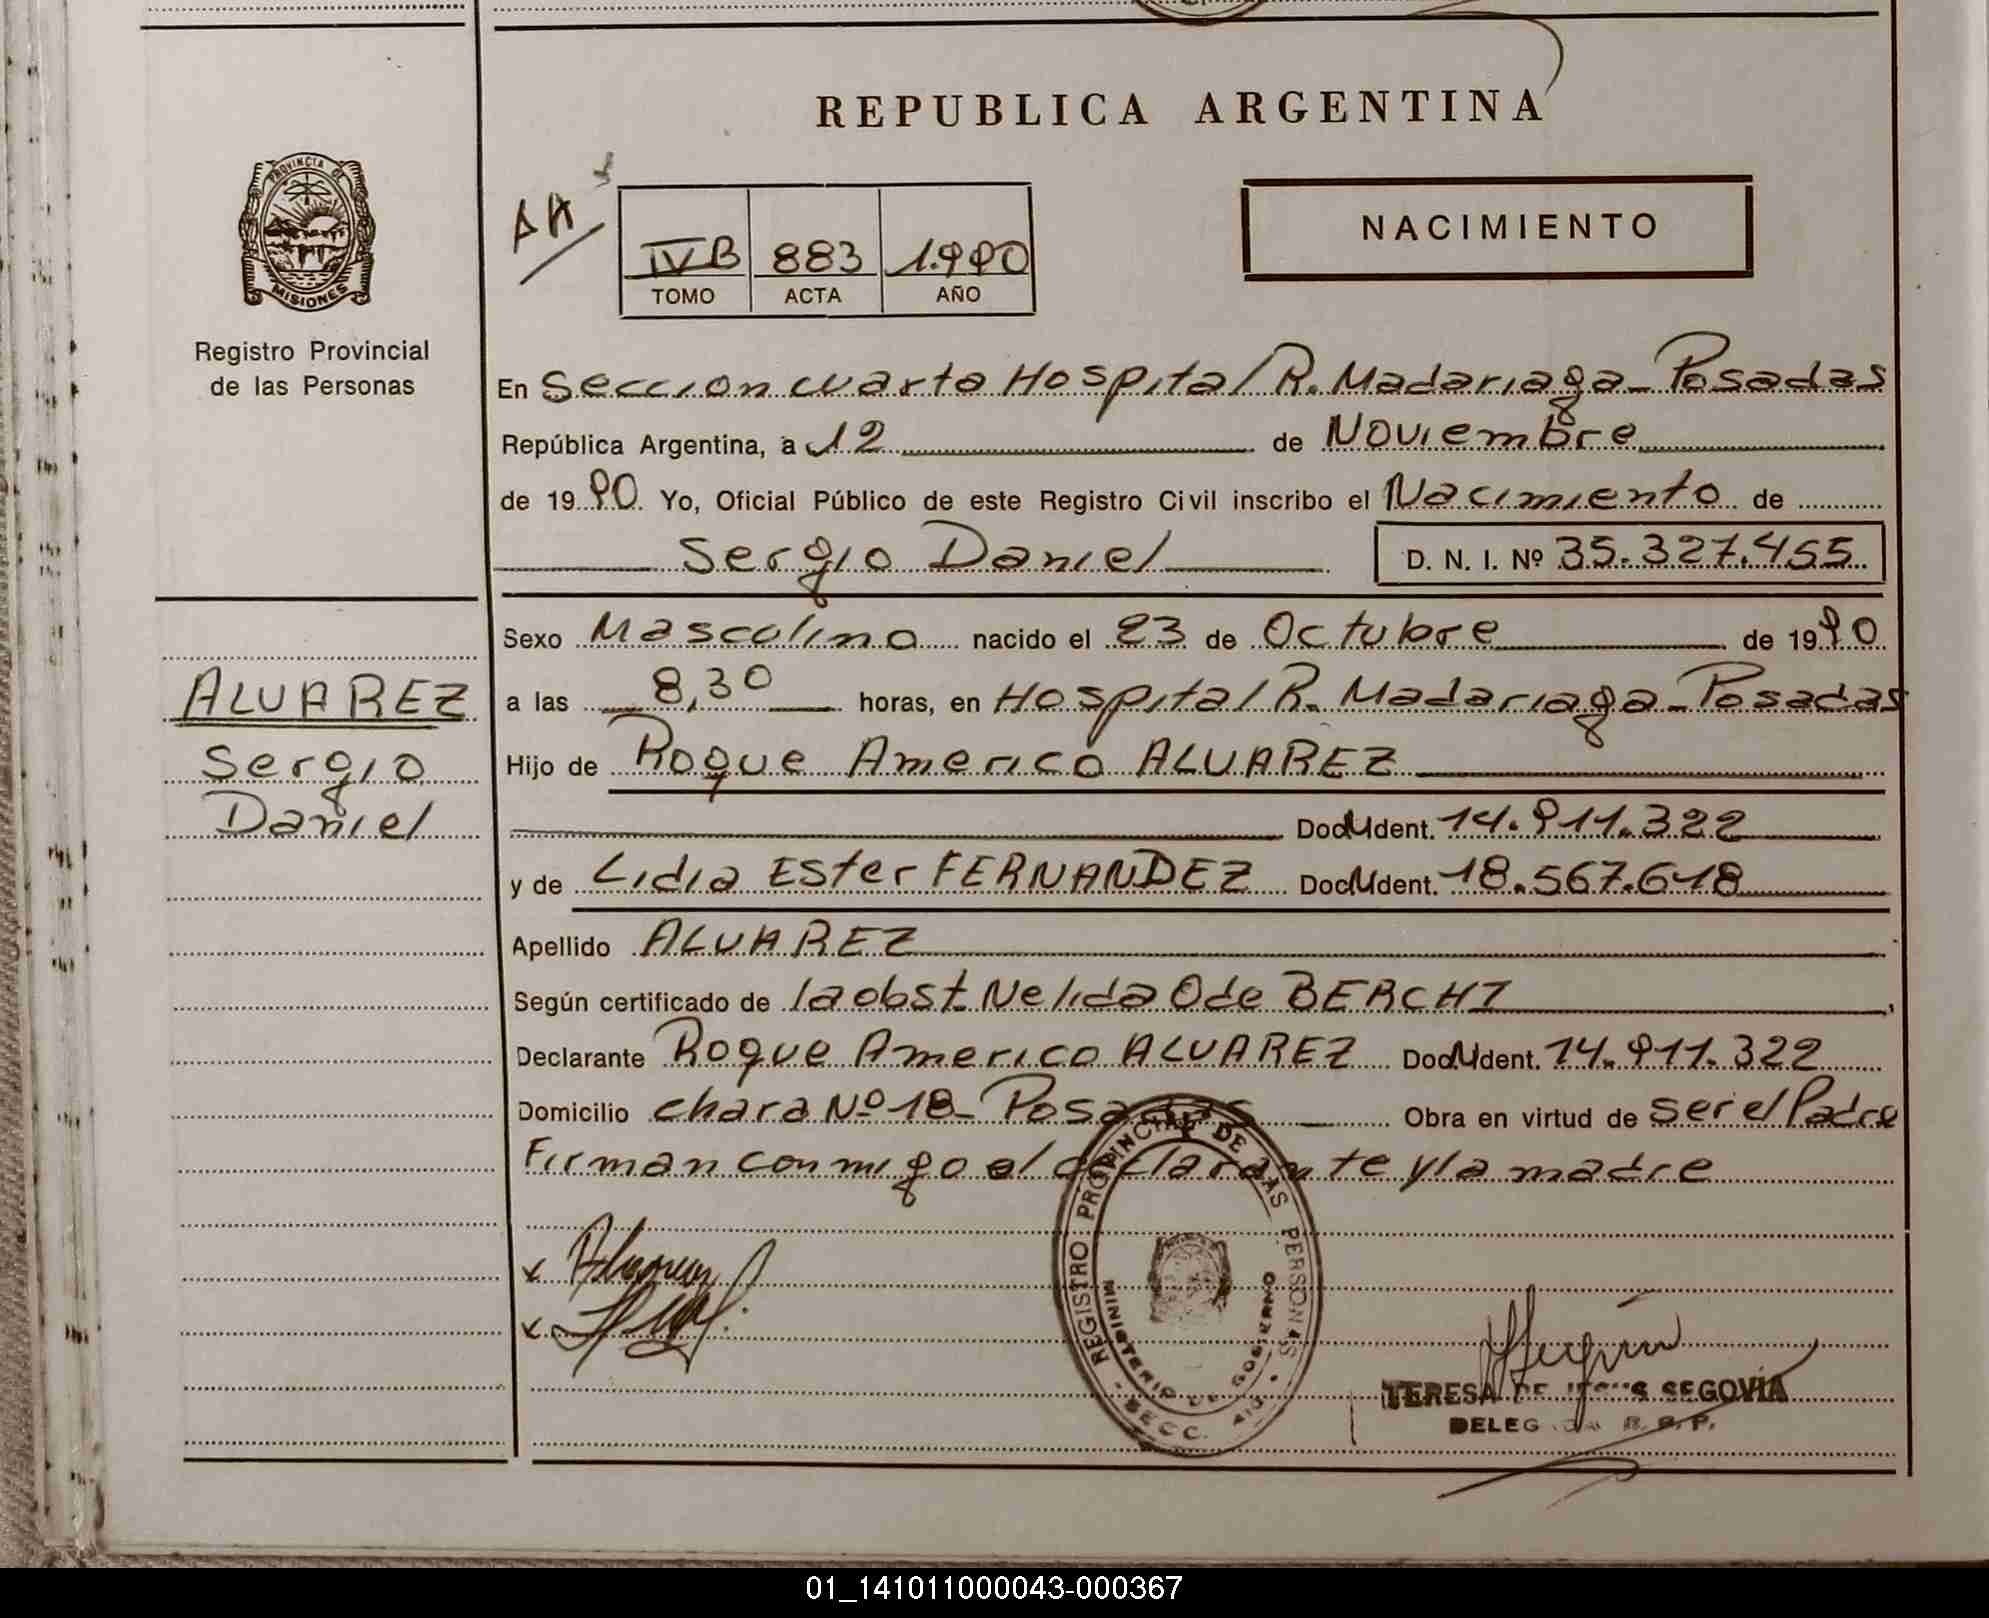 REPUBLICA ARGENTINA
PROVINCIA DE
MISIONES
Registro Provincial
de las Personas
AA
IVB 883 1.990
TOMO ACTA AÑO
NACIMIENTO
En Seccion cuarta Hospital R. Madariaga - Posadas
República Argentina, a 12 de Noviembre
de 1990. Yo, Oficial Público de este Registro Civil inscribo el Nacimiento de
Sergio Daniel D. N. I. Nº 35.327.455
Sexo Masculino nacido el 23 de Octubre de 1990
a las 8,30 horas, en Hospital R. Madariaga - Posadas
Hijo de Roque Americo ALVAREZ
Doc. Ident. 14.911.322
y de Lidia Ester FERNANDEZ Doc. Ident. 18.567.618
Apellido ALVAREZ
Según certificado de la obst. Nelida O de BERCHI
Declarante Roque Americo ALVAREZ Doc. Ident. 14.911.322
Domicilio chara Nº 18 - Posadas Obra en virtud de ser el Padre
Firman conmigo el declarante y la madre
ALVAREZ
Sergio
Daniel
REGISTRO PROVINCIAL DE LAS PERSONAS
MINISTERIO DE GOBIERNO
SECC. 4ta.
TERESA DE JESUS SEGOVIA
DELEGADA R. P. P.
01_141011000043-000367